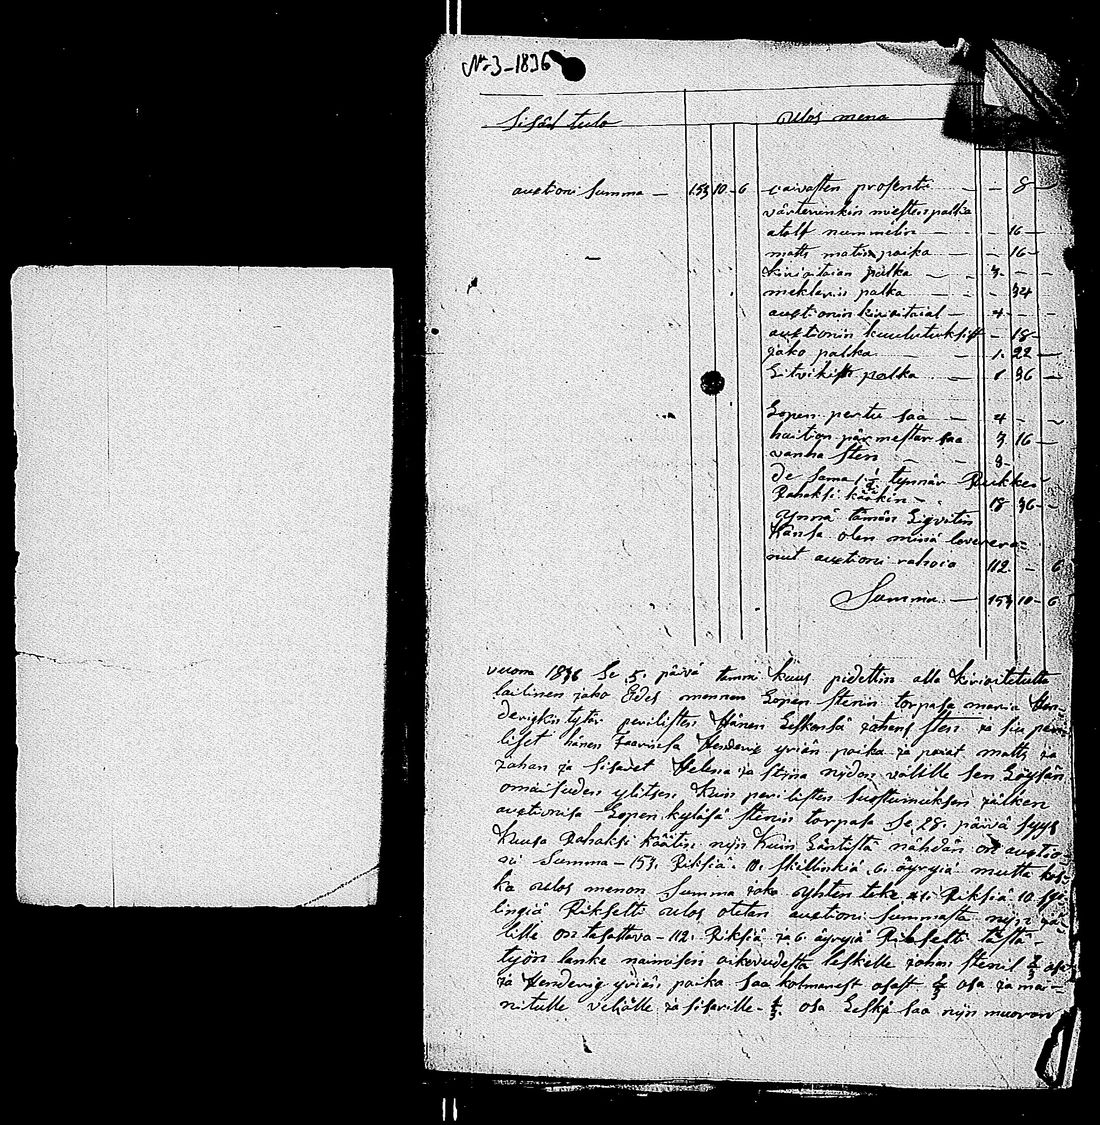 No 3-1836
Sisäl tulo
Ulos meno
auxtioni Summa — 153 10 - 6
vaivasten prosenti — — 8 —
värterinkin miesten palka
atolf nummelin — — 16 —
matts matin poika — — 16 —
Kirioitaian palka — 3 - —
meklarin palka — — 34
auxtionin kirioitaial — 4 — —
auxtionin kuulutuksist — 18 —
jako palka — 1. 22 —
palka — 1 36 —
Lopen pertu saa — 4 - —
saa 3 16 —
vanha sten — 3 -
de sama 1 1/2 tynnär Rukkei
Rahaksi käätkin — 18 36 —
ynnä tämän Liqvitin
Kansa olen minä leverera=
nut auxtioni rahoia 112. — 6
Summa — 153 10 - 6
vuona 1836 Se 5. päivä tammi Kuus pidettin alla kirioitetulta
lailinen jako Edes mennen Lopen Stenin torpasa maria Hen-
derigkin tytär perilisten Hänen Leskensä Johans Sten ja su peri-
liset hänen Henderig yriän poika ja poiat matts ja
Johan ja Sisaret Helena ja Stina nydon välille sen Löytän
omaisuden ylitsen, Kuin perilisten suostumuksen jälken
auxtionisa Lopen kyläsä Stenin torpasa Se 28. päivä syys
Kuusa Rahaksi käätin nyn Kuin Läntistä nähdän on auxtio-
ni Summa - 153. Riksiä. 10. skillinkiä 6. äyryiä mutta kos-
ka ulos menon Summa joka yhten teke 41. Riksiä 10 skil
lingiä Rikselti Ulos otetan auxtioni summasta nyn jäl
lille on tasattava - 112. Riksiä ja 6. äyryiä Rikselti tästä -
työn lanke naimisen oikeudesta leskelle Johan Stenil 2/3 osa
ja Henderig yriän poika saa kolmanest osast 2/3 osa ja mai-
nitulle veliälle ja sisarille - 1/3. osa Leski saa nyn muoron